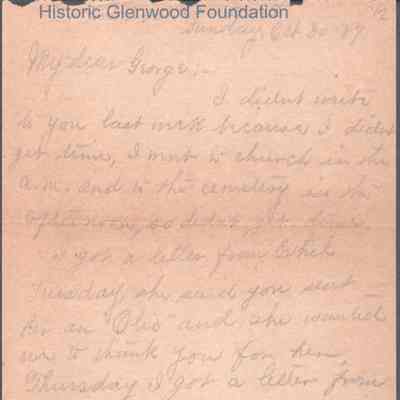 Historic Glenwood Foundation
Sunday Oct 30 27
My dear George:-
I didnt write
to you last week because I didnt
get time, I went to church in the
a.m. and to the cemetery in the
afternoon, so didnt get time.
I got a letter from Ethel
Tuesday, she said you sent
her an "Olio" and she wanted
me to thank you for her.
Thursday I got a letter from